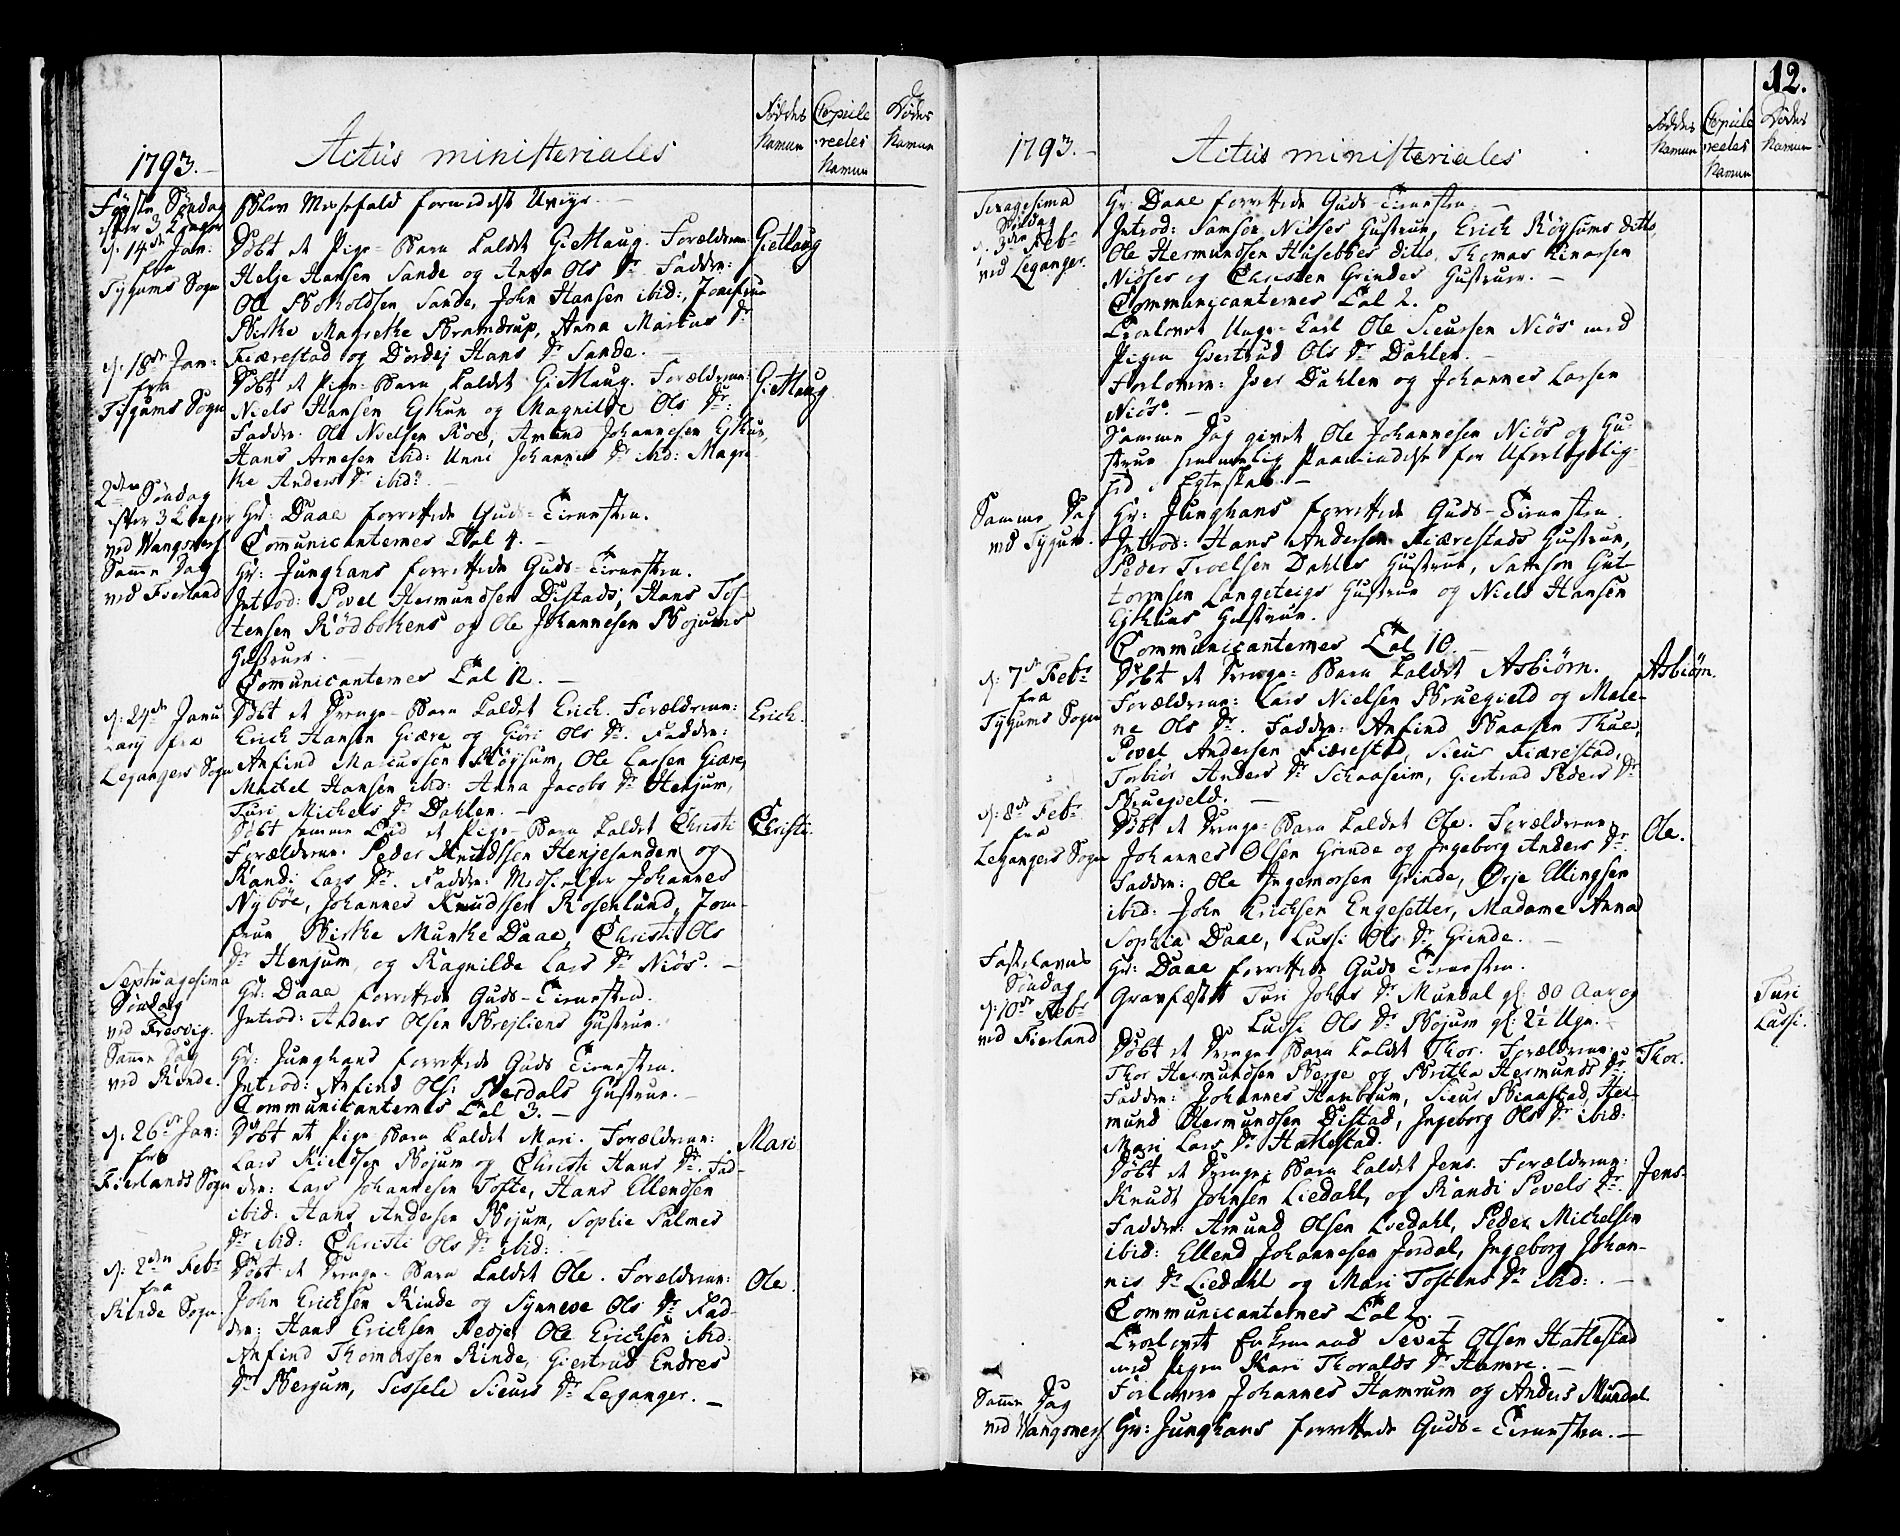 1793.
Actus ministeriales
Fødtes Namen
Copuleredes Namen
Dødes Namen
Første Søndag efter 3 Konger
Blev Messefald formedelst Uveyr.
d: 14de Jan: fra Tygums Sogn
Døbt et Pige-Barn kaldet Giettaug. Forældrene:
Giettaug
Helje Hansen Sande og Anna Ols Dr. Faddere:
Ole Botholdsen Sande, John Hansen ibid:, Jomfrue
Birthe Magrethe Bramdrup, Anna Marcus Dr
Fiærestad og Dordej Hans Dr Sande.
d: 18de Jan: fra Tygums Sogn
Døbt et Pige-Barn kaldet Giettaug. Forældrene:
Giettaug
Niels Hansen Eschun og Magnilde Ols Dr.
Faddere: Ole Nielsen Roe, Amund Johannesen
Hans Arnesen ibid: Unni Johannes Dr ibid: Magre-
the Anders Dr ibid:
2den Søndag efter 3 Konger ved Wangsness
Hr: Daae forrettede Guds-Tienesten.
Communicanternes Tal 4.
Samme Dag ved Fierland
Hr: Junghans forrettede Guds-Tienesten.
Introd: Povel Hermundsen Distads, Hans Tos-
tensen Rødbothens og Ole Johannesen Bojums
Hustruer.
Communicanternes Tal 12.
Januarij fra Legangers Sogn
Døbt et Drenge-Barn kaldet Erich. Forældrene:
Erich.
Erich Hansen Giære og Giøri Ols Dr. Faddere:
Anfind Marcussen Røysum, Ole Larsen Giære,
Michel Hansen ibid: Anna Jacobs Dr Henjum,
Turi Michels Dr Dahlen.
Døbt samme Tid et Pige-Barn kaldet Christi
Christi.
Forældrene: Peder Knudssen Henjesanden og
Randi Lars Dr. Faddere: Johannes
Nybøe, Johannes Knudssen Rosenlund, Jom-
frue Birthe Munthe Daae, Christi Ols
Dr Henjum, og Ragnilde Lars Dr Niøs.
Septuagesima Søndag ved Fresvig.
Hr: Daae forrettede Guds-Tienesten.
Introd: Anders Olsen Brejliens Hustrue.
Samme Dag ved Rinde.
Hr: Junghans forrettede Guds Tienesten.
Introd: Anfind Ols: Nerdals Hustrue.
Communicanternes Tal 3.
d: 26de Jan: fra Fierlands Sogn
Døbt et Pige-Barn kaldet Mari. Forældrene:
Mari
Lars Bojum og Christi Hans Dr. Fad-
dere: Lars Johannesen Tofte, Hans Ellendsen
ibid: Hans Andersen Bojum, Sophie Salmes
Dr ibid: Christi Ols Dr ibid:
d: 2den Febr fra Rinde Sogn
Døbt et Drenge-Barn kaldet Ole. Forældrene:
Ole.
John Erichsen Rinde og Synneve Ols Dr. Fad-
dere: Hans Erichsen Hedje, Ole Erichsen ibid:
Anfind Thomassen Rinde, Giertrud Endres
Dr Bergum, Sissele Sieurs Dr Leganger.
12.
1793.
Actus ministeriales
Fødtes Namen
Copuleredes Namen
Dødes Namen
Sexagesima Søndag d. 3de Febr ved Leganger.
Hr: Daae forrettede Guds-Tienesten.
Introd: Samson Niøsses Hustrue, Erich Røysums ditto,
Ole Hermundsen Husebbes ditto, Thomas
Niøsses og Christen Grindes Hustruer.
Communicanternes Tal 2.
Trolovet Unge-Karl Ole Sieursen Niøs med
Pigen Giertrud Ols Dr Dahlen.
Forlovere: Iver Dahlen og Johannes Larsen
Niøs.
Samme Dag givet Ole Johannesen Niøs og Hu-
strue hemmelig Paamindelse for Uforligelig-
hed i Egteskab.
Samme Dag ved Tygum.
Hr: Junghans forrettede Guds-Tienesten.
Introd: Hans Andersen Fiærestads Hustrue,
Peder Troelsen Dahles Hustrue, Samson Gut-
tormsen Langeteigs Hustrue og Niels Hansen
Hustrue.
Communicanternes Tal 10.
d: 7de Febr fra Tygums Sogn
Døbt et Drenge-Barn kaldet Asbiørn.
Asbiørn.
Forældrene: Lars Nielsen Bruegield og Male-
ne Ols Dr. Faddere: Anfind Baasen Thue,
Povel Andersen Fiærestad, Sieur Fiærestad,
Torbiør Anders Dr Schaaseim, Giertrud Peders Dr
Bruegield.
d: 8de Febr fra Legangers Sogn
Døbt et Drenge-Barn kaldet Ole. Forældrene:
Ole.
Johannes Olsen Grinde og Ingeborg Anders Dr.
Faddere: Ole Ingemorsen Grinde, Ørje Ellingsen
ibid: John Erichsen Engesetter, Madame Anna
Sophia Daae, Lussi Ols Dr Grinde.
Fastelavns Søndag d: 10de Febr ved Fierland
Hr: Daae forrettede Guds Tienesten.
Gravfæstet Turi Johns Dr Mundal gl: 80 Aar og
Turi
Lussi Ols Dr Bojum gl: 21 Uge.
Lussi.
Døbt et Drenge-Barn kaldet Thor. Forældrene:
Thor.
Thor Hermundsen Berge og Britha Hermunds Dr.
Faddere: Johannes Hambrum, Sieur Biaastad, Her-
mund Hermundsen Distad, Ingeborg Ols Dr ibid:
Mari Lars Dr Hattestad.
Døbt et Drenge-Barn kaldet Jens. Forældrene:
Jens.
Knudt Johnsen Liedahl, og Randi Povels Dr.
Faddere: Amund Olsen Liedahl, Peder Michelsen
ibid: Ellend Johannesen Jordal, Ingeborg Johan-
nis Dr Liedahl og Mari Tostens Dr ibid:
Communicanternes Tal 2.
Trolovet Enkemand Sevat Olsen Hattestad
med Pigen Kari Thoralds Dr Hamre.
Forlovere Johannes Hamrum og Anders Mundal.
Samme Dag ved Wangsness
Hr: Junghans forrettede Guds-Tienesten.